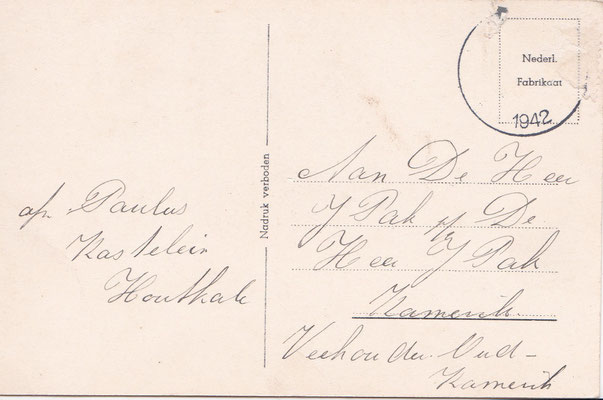 afz Paulus
Kastelein
Houtkade
Nadruk verboden
Nederl.
Fabrikaat
1942
Aan De Heer
J Pak p/a De
Heer J Pak
Kamerik.
Veehouder Oud-
Kamerik